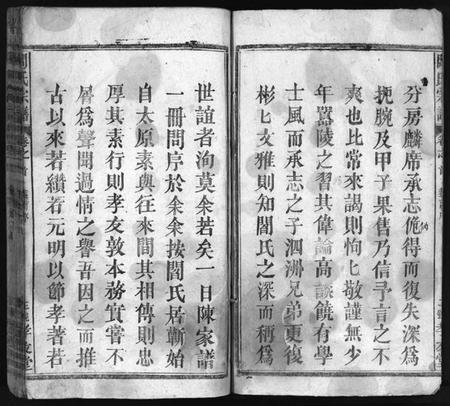 分房麟席承志佹得而復失深爲
扼腕及甲子果售乃信予言之不
爽也比常來謁則恂匕敬謹無少
年囂陵之習其偉論高談饒有學
士風而承志之子泗洲兄弟更復
彬匕文雅則知閻氏之深而稱爲
世誼者洵莫余若矣一日陳家譜
一冊問序於余余按閻氏居蘄始
自太原素與往來間其相傳則忠
厚其素行則孝友敦本務實嘗不
屑爲聲聞過情之譽吾因之而推
古以來若纘若元明以節孝著若